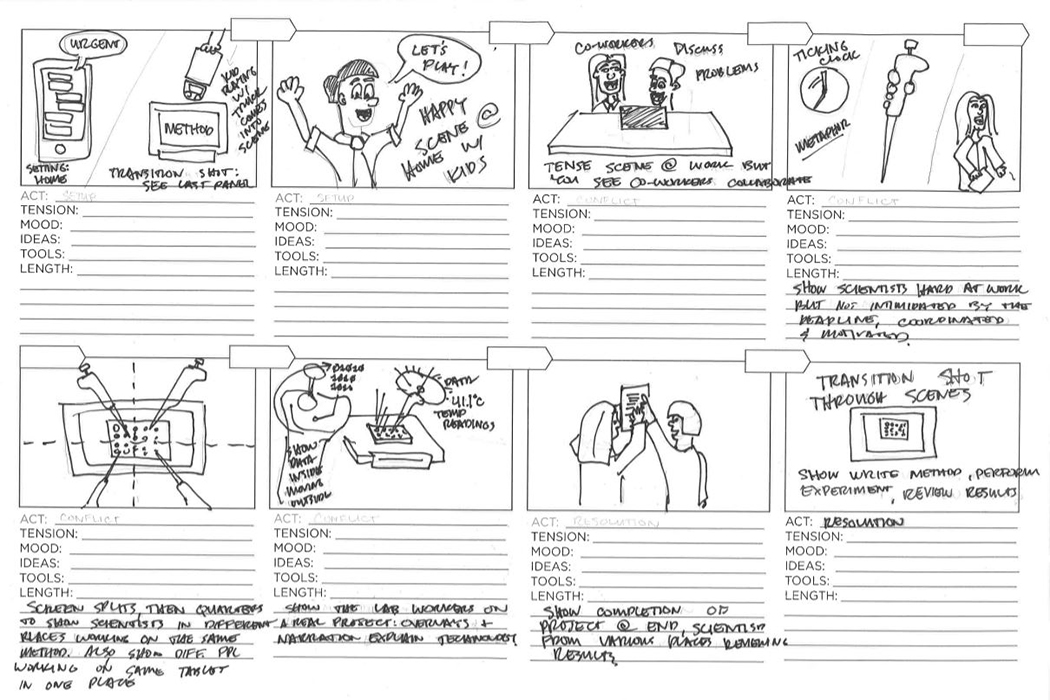 URGENT
SETTING:
HOME
KID
PLAYING
W/
TRUCK
COMES
INTO
SCENE
METHOD
TRANSITION SHOT:
SEE LAST PANEL
ACT: SETUP
TENSION:
MOOD:
IDEAS:
TOOLS:
LENGTH:
LET'S
PLAY!
HAPPY
SCENE @
HOME W/
KIDS
ACT: SETUP
TENSION:
MOOD:
IDEAS:
TOOLS:
LENGTH:
CO-WORKERS DISCUSS
PROBLEMS
TENSE SCENE @ WORK BUT
YOU SEE CO-WORKERS COLLABORATE
ACT: CONFLICT
TENSION:
MOOD:
IDEAS:
TOOLS:
LENGTH:
TICKING
CLOCK
METAPHOR
ACT: CONFLICT
TENSION:
MOOD:
IDEAS:
TOOLS:
LENGTH:
SHOW SCIENTISTS HARD AT WORK
BUT NOT INTIMIDATED BY THE
DEADLINE, COORDINATED
& MOTIVATED.
ACT: CONFLICT
TENSION:
MOOD:
IDEAS:
TOOLS:
LENGTH:
SCREEN SPLITS, THEN QUARTERS
TO SHOW SCIENTISTS IN DIFFERENT
PLACES WORKING ON THE SAME
METHOD. ALSO SHOW DIFF. PPL
WORKING ON SAME TABLET
IN ONE PLACE
01010
1010
1010
SHOW
DATA
INSIDE
MOVING
OUTSIDE
DATA
41.1°C
TEMP
READINGS
ACT: CONFLICT
TENSION:
MOOD:
IDEAS:
TOOLS:
LENGTH:
SHOW THE LAB WORKERS ON
A REAL PROJECT: OVERLAYS +
NARRATION EXPLAIN TECHNOLOGY
ACT: RESOLUTION
TENSION:
MOOD:
IDEAS:
TOOLS:
LENGTH:
SHOW COMPLETION OF
PROJECT @ END, SCIENTIST
FROM VARIOUS PLACES REVIEWING
RESULTS
TRANSITION SHOT
THROUGH SCENES
SHOW WRITE METHOD, PERFORM
EXPERIMENT, REVIEW RESULTS
ACT: RESOLUTION
TENSION:
MOOD:
IDEAS:
TOOLS:
LENGTH: